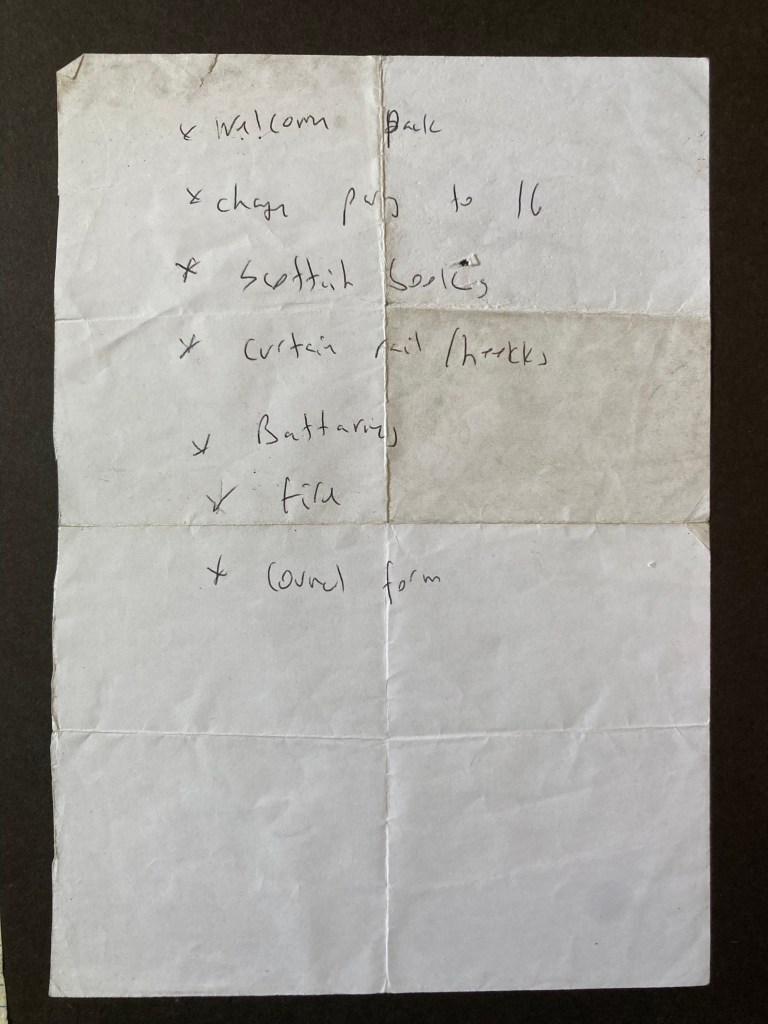 * Welcome pack
* change pars to 16
* Scottish books
* curtain rail / hookks
* Battaries
* fire
* council form